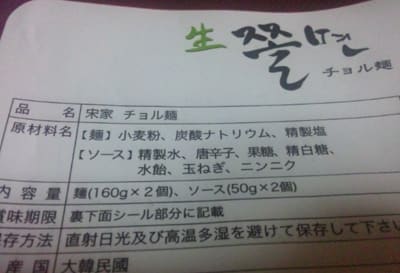 生 쫄면
チョル麺
品 名 宋家 チョル麺
原材料名 【麺】小麦粉、炭酸ナトリウム、精製塩
【ソース】精製水、唐辛子、果糖、精白糖、
水飴、玉ねぎ、ニンニク
内容量 麺(160g×2個)、ソース(50g×2個)
賞味期限 裏下面シール部分に記載
保存方法 直射日光及び高温多湿を避けて保存して下さい
産国 大韓民國